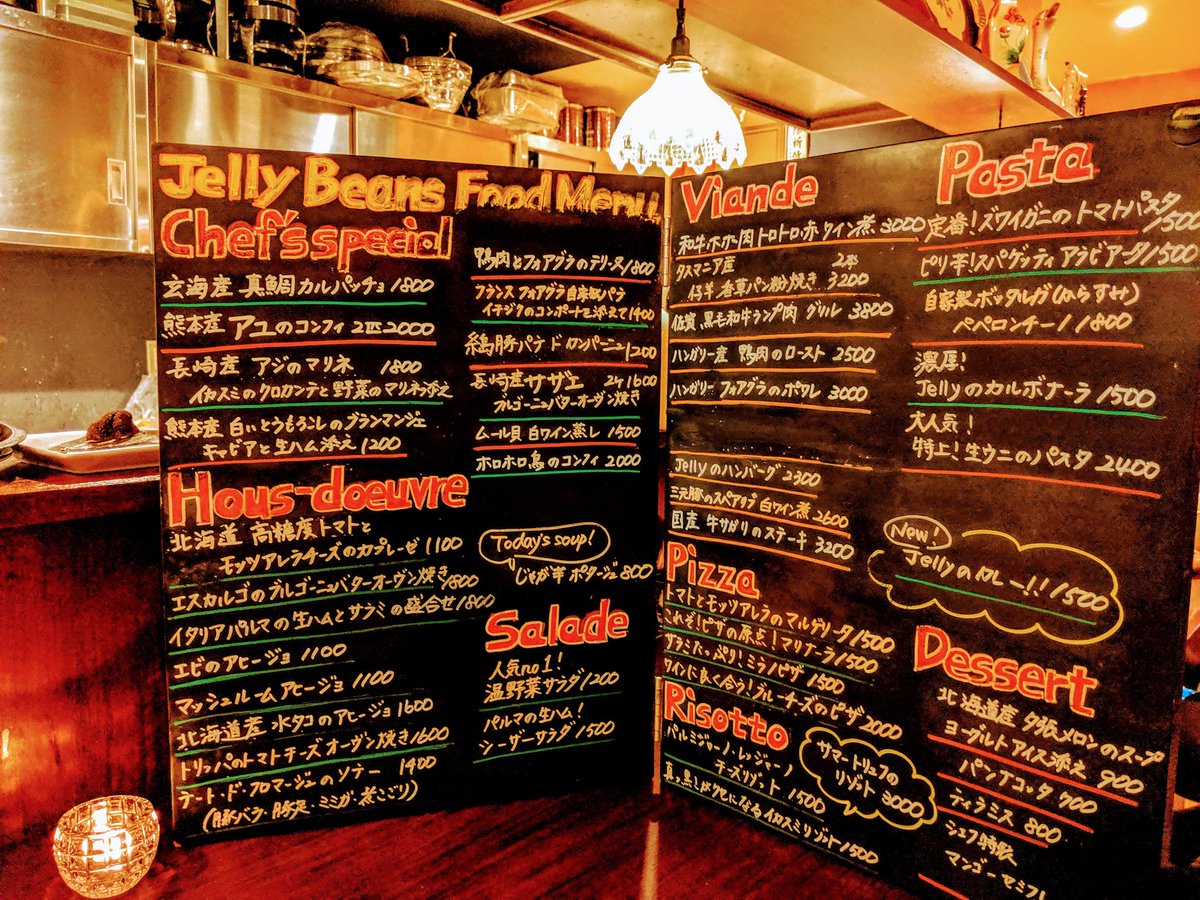 Jelly Beans Food Menu
Chef's special
玄海産 真鯛カルパッチョ 1800
熊本産 アユのコンフィ 2匹2000
長崎産 アジのマリネ 1800
イカスミのクロカンテと野菜のマリネ添え
熊本産 白いとうもろこしのブランマンジェ
キャビアと生ハム添え 1200
Hous-doeuvre
北海道 高糖度トマトと
モッツァレラチーズのカプレーゼ 1100
エスカルゴのブルゴーニュバターオーヴン焼き 1800
イタリアパルマの生ハムとサラミの盛合せ 1800
エビのアヒージョ 1100
マッシュルームアヒージョ 1100
北海道産 水タコのアヒージョ 1600
トリッパのトマトチーズオーヴン焼き 1600
テート・ド・フロマージュのソテー 1400
(豚バラ・豚足・ミミガー煮こごり)
鴨肉とフォアグラのテリーヌ 1800
フランス フォアグラ自家製パテ
イチジクのコンポートを添えて 1400
豚パテ ド カンパーニュ 1200
長崎産サザエ 2ケ1600
ブルゴーニュバターオーヴン焼き
ムール貝 白ワイン蒸し 1500
ホロホロ鳥のコンフィ 2000
Today's soup!
じゃが芋 ポタージュ 800
Salade
人気no1!
温野菜サラダ 1200
パルマの生ハム!
シーザーサラダ 1500
Viande
和牛ホホ肉トロトロ赤ワイン煮 3000
タスマニア産 2本
仔羊 香草パン粉焼き 3200
佐賀 黒毛和牛ランプ肉 グリル 3800
ハンガリー産 鴨肉のロースト 2500
ハンガリー フォアグラのポワレ 3000
Jellyのハンバーグ 2300
三元豚のスペアリブ 白ワイン煮 2600
国産 牛サガリのステーキ 3200
Pizza
トマトとモッツァレラのマルゲリータ 1500
これぞ!ピザの原点!マリナーラ 1500
サラミたっぷり!ミラノピザ 1500
ワインに良く合う!ブルーチーズのピザ 2000
Risotto
パルミジャーノ・レッジャーノ
チーズリゾット 1500
真っ黒しかクセになるイカスミリゾット 1500
サマートリュフの
リゾット 3000
Pasta
定番!ズワイガニのトマトパスタ
1500
ピリ辛!スパゲッティ アラビアータ 1500
自家製ボッタルガ(からすみ)
ペペロンチーノ 1800
濃厚!
Jellyのカルボナーラ 1500
大人気!
特上!生ウニのパスタ 2400
New!
Jellyのカレー!! 1500
Dessert
北海道産 夕張メロンのスープ
ヨーグルトアイス添え 900
パンナコッタ 700
ティラミス 800
シェフ特製
マンゴーセミフレ